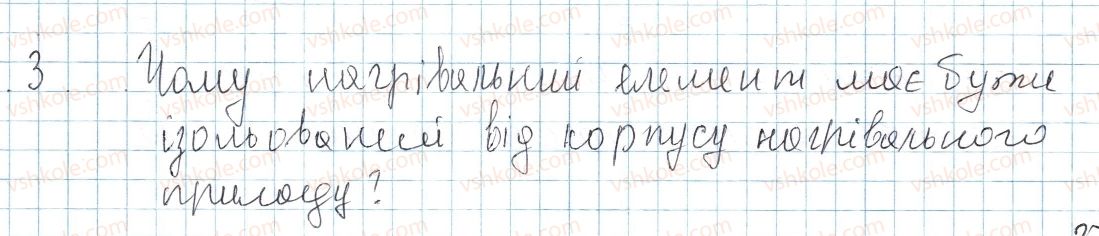 3 Чому нагрівальний елемент має бути
ізольований від корпусу нагрівального
приладу?